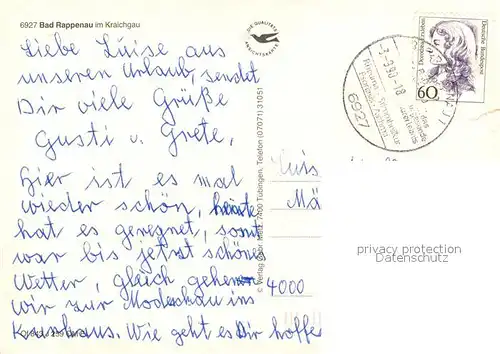 6927 Bad Rappenau im Kraichgau
Liebe Luise aus
unseren Urlaub, sendet
Dir viele Grüße
Gusti u. Grete,
Hier ist es mal
wieder schön, heute
hat es geregnet, sonst
war bis jetzt schönes
Wetter, gleich gehen
wir zur Modeschau ins
Kurshaus. Wie geht es Dir hoffe
DIE QUALITÄTS
ANSICHTSKARTE
7400 Tübingen, Telefon (07071) 31051
© Verlag
Luis
Mä
4000
-3.-9.90-18
6927
Deutsche Bundespost
60
privacy protection
Datenschutz